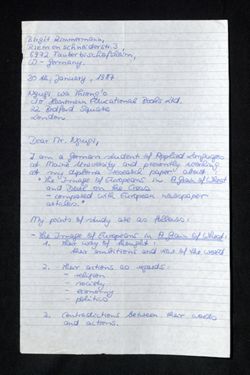 Birgit Zimmermann,
Riemenschneiderstr. 3,
6972 Tauberbischofsheim,
W-Germany.
20th, January, 1987
Ngugi wa Thiong'o
c/o Heinemann Educational Books Ltd.
22 Bedford Square
London.
Dear Mr. Ngugi,
I am a German student of Applied Languages
at Mainz University and presently working
at my diploma research paper about
"The Image of Europeans in A Grain of Wheat
and Devil on the Cross
- compared with European newspaper
articles."
My points of study are as follows:
- The Image of Europeans in A Grain of Wheat:
1. their way of thought:
their ambitions and view of the world
2. their actions as regards
- religion
- society
- economy
- politics
3. Contradictions between their words
and actions.